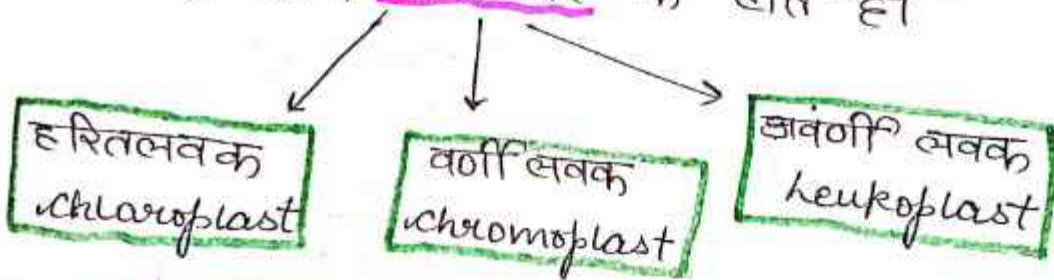 के होते हैं।
हरितलवक
chloroplast
वर्णी लवक
chromoplast
अवर्णी लवक
Leukoplast